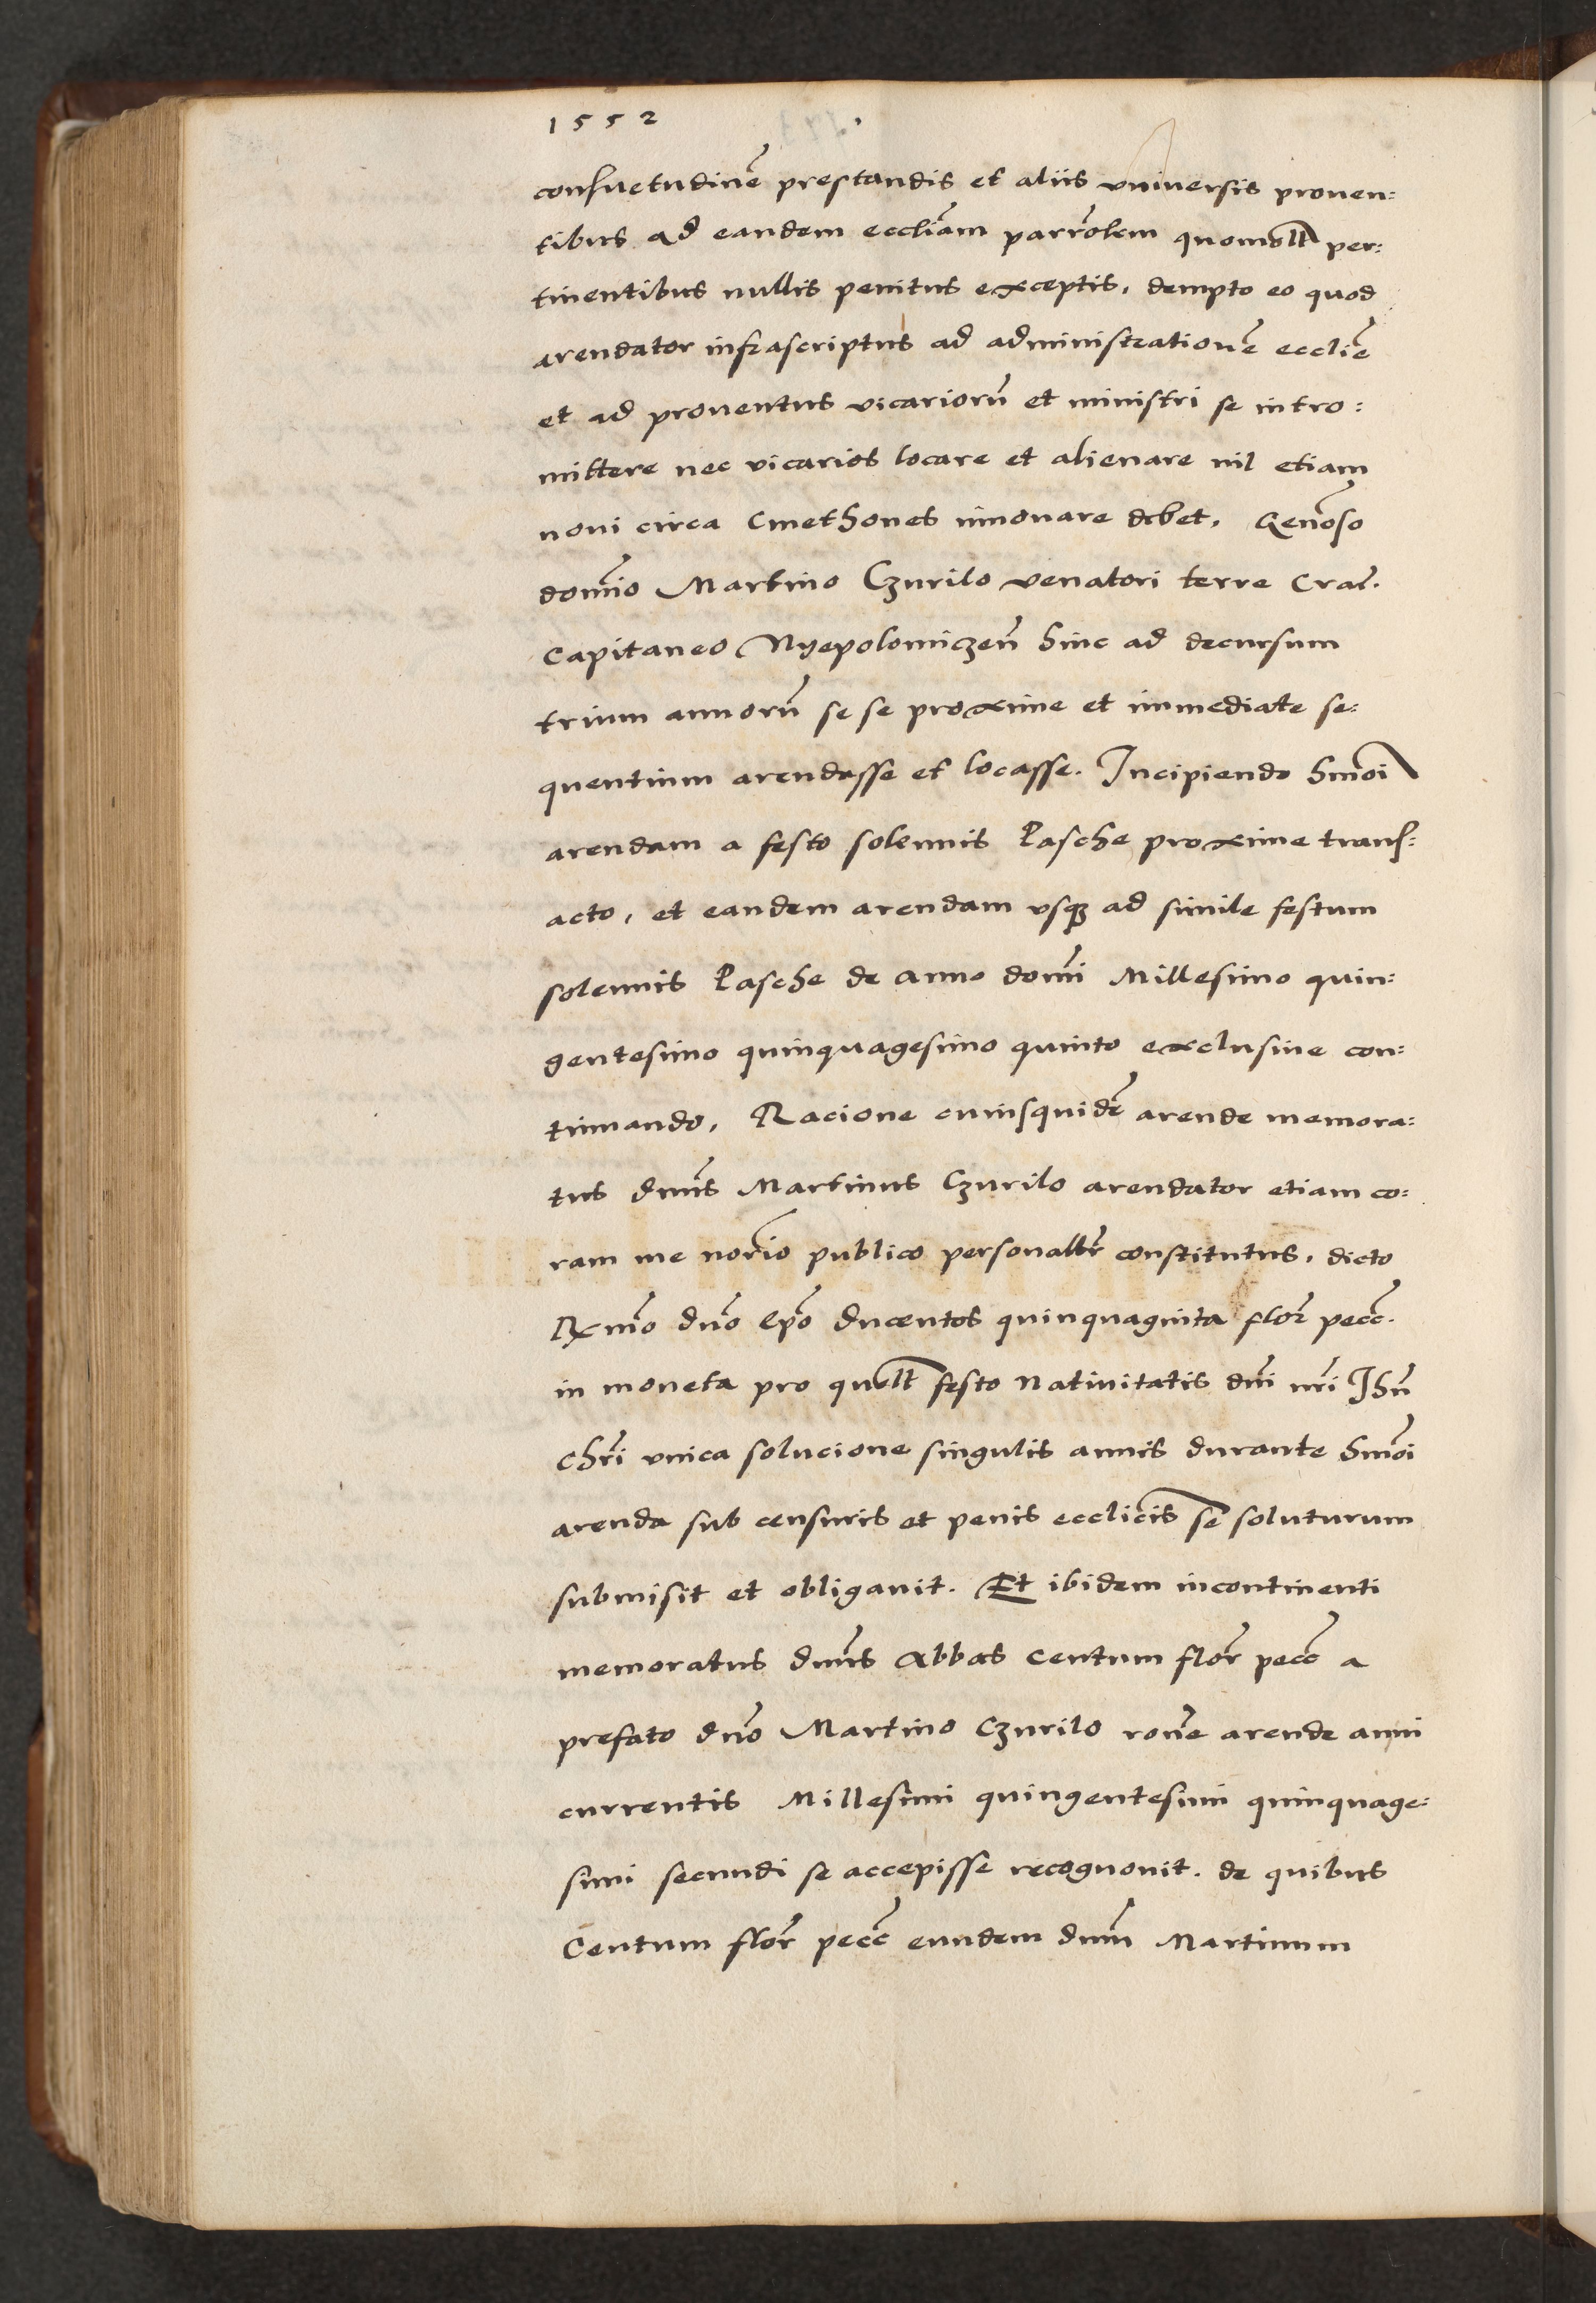 1552
consuetudinē prestandis et aliis vniuersis prouen:
tibus ad eandem eccliām parrōlem quomōlt per:
tinentibus nullis penitus exceptis, dempto eo quod
arendator infrascriptus ad administrationē eccliē
et ad prouentus vicariorū et ministri se intro:
mittere nec vicarios locare et alienare nil etiam
noui circa Cmethones innouare debet, Genōso
domīo Martino Czurilo venatori terre Crać.
Capitaneo Nyepolomiczeñ hinc ad decursum
trium annorū se se proxime et immediate se:
quentium arendasse et locasse. Incipiendo hmōi
arendam a festo solennis Pasche proxime trans:
acto, et eandem arendam vsq3 ad simile festum
solennis Pasche de anno domī Millesimo quin:
gentesimo quinquagesimo quinto exclusiue con:
tinuando, Racione cuiusquidē arende memora:
tus dnūs Martinus Czurilo arendator etiam co:
ram me norīo publico personallr̄ constitutus, dicto
Rx̄mo dnō epō ducentos quinquaginta flor̄ pecc̄.
in moneta pro quolt̄ festo Natiuitatis dnī nrī Ihū
Chrī vnica solucione singulis annis durante hmōi
arenda sub censuris et penis ecclīcis se soluturum
submisit et obligauit. Et ibidem incontinenti
memoratus dnūs Abbas Centum flor̄ pecc̄ a
prefato dnō Martino Czurilo ronē arende anni
currentis Millesimi quingentesimi quinquage:
simi secundi se accepisse recognouit. de quibus
Centum flor̄ pecc̄ eundem dnūm Martinum